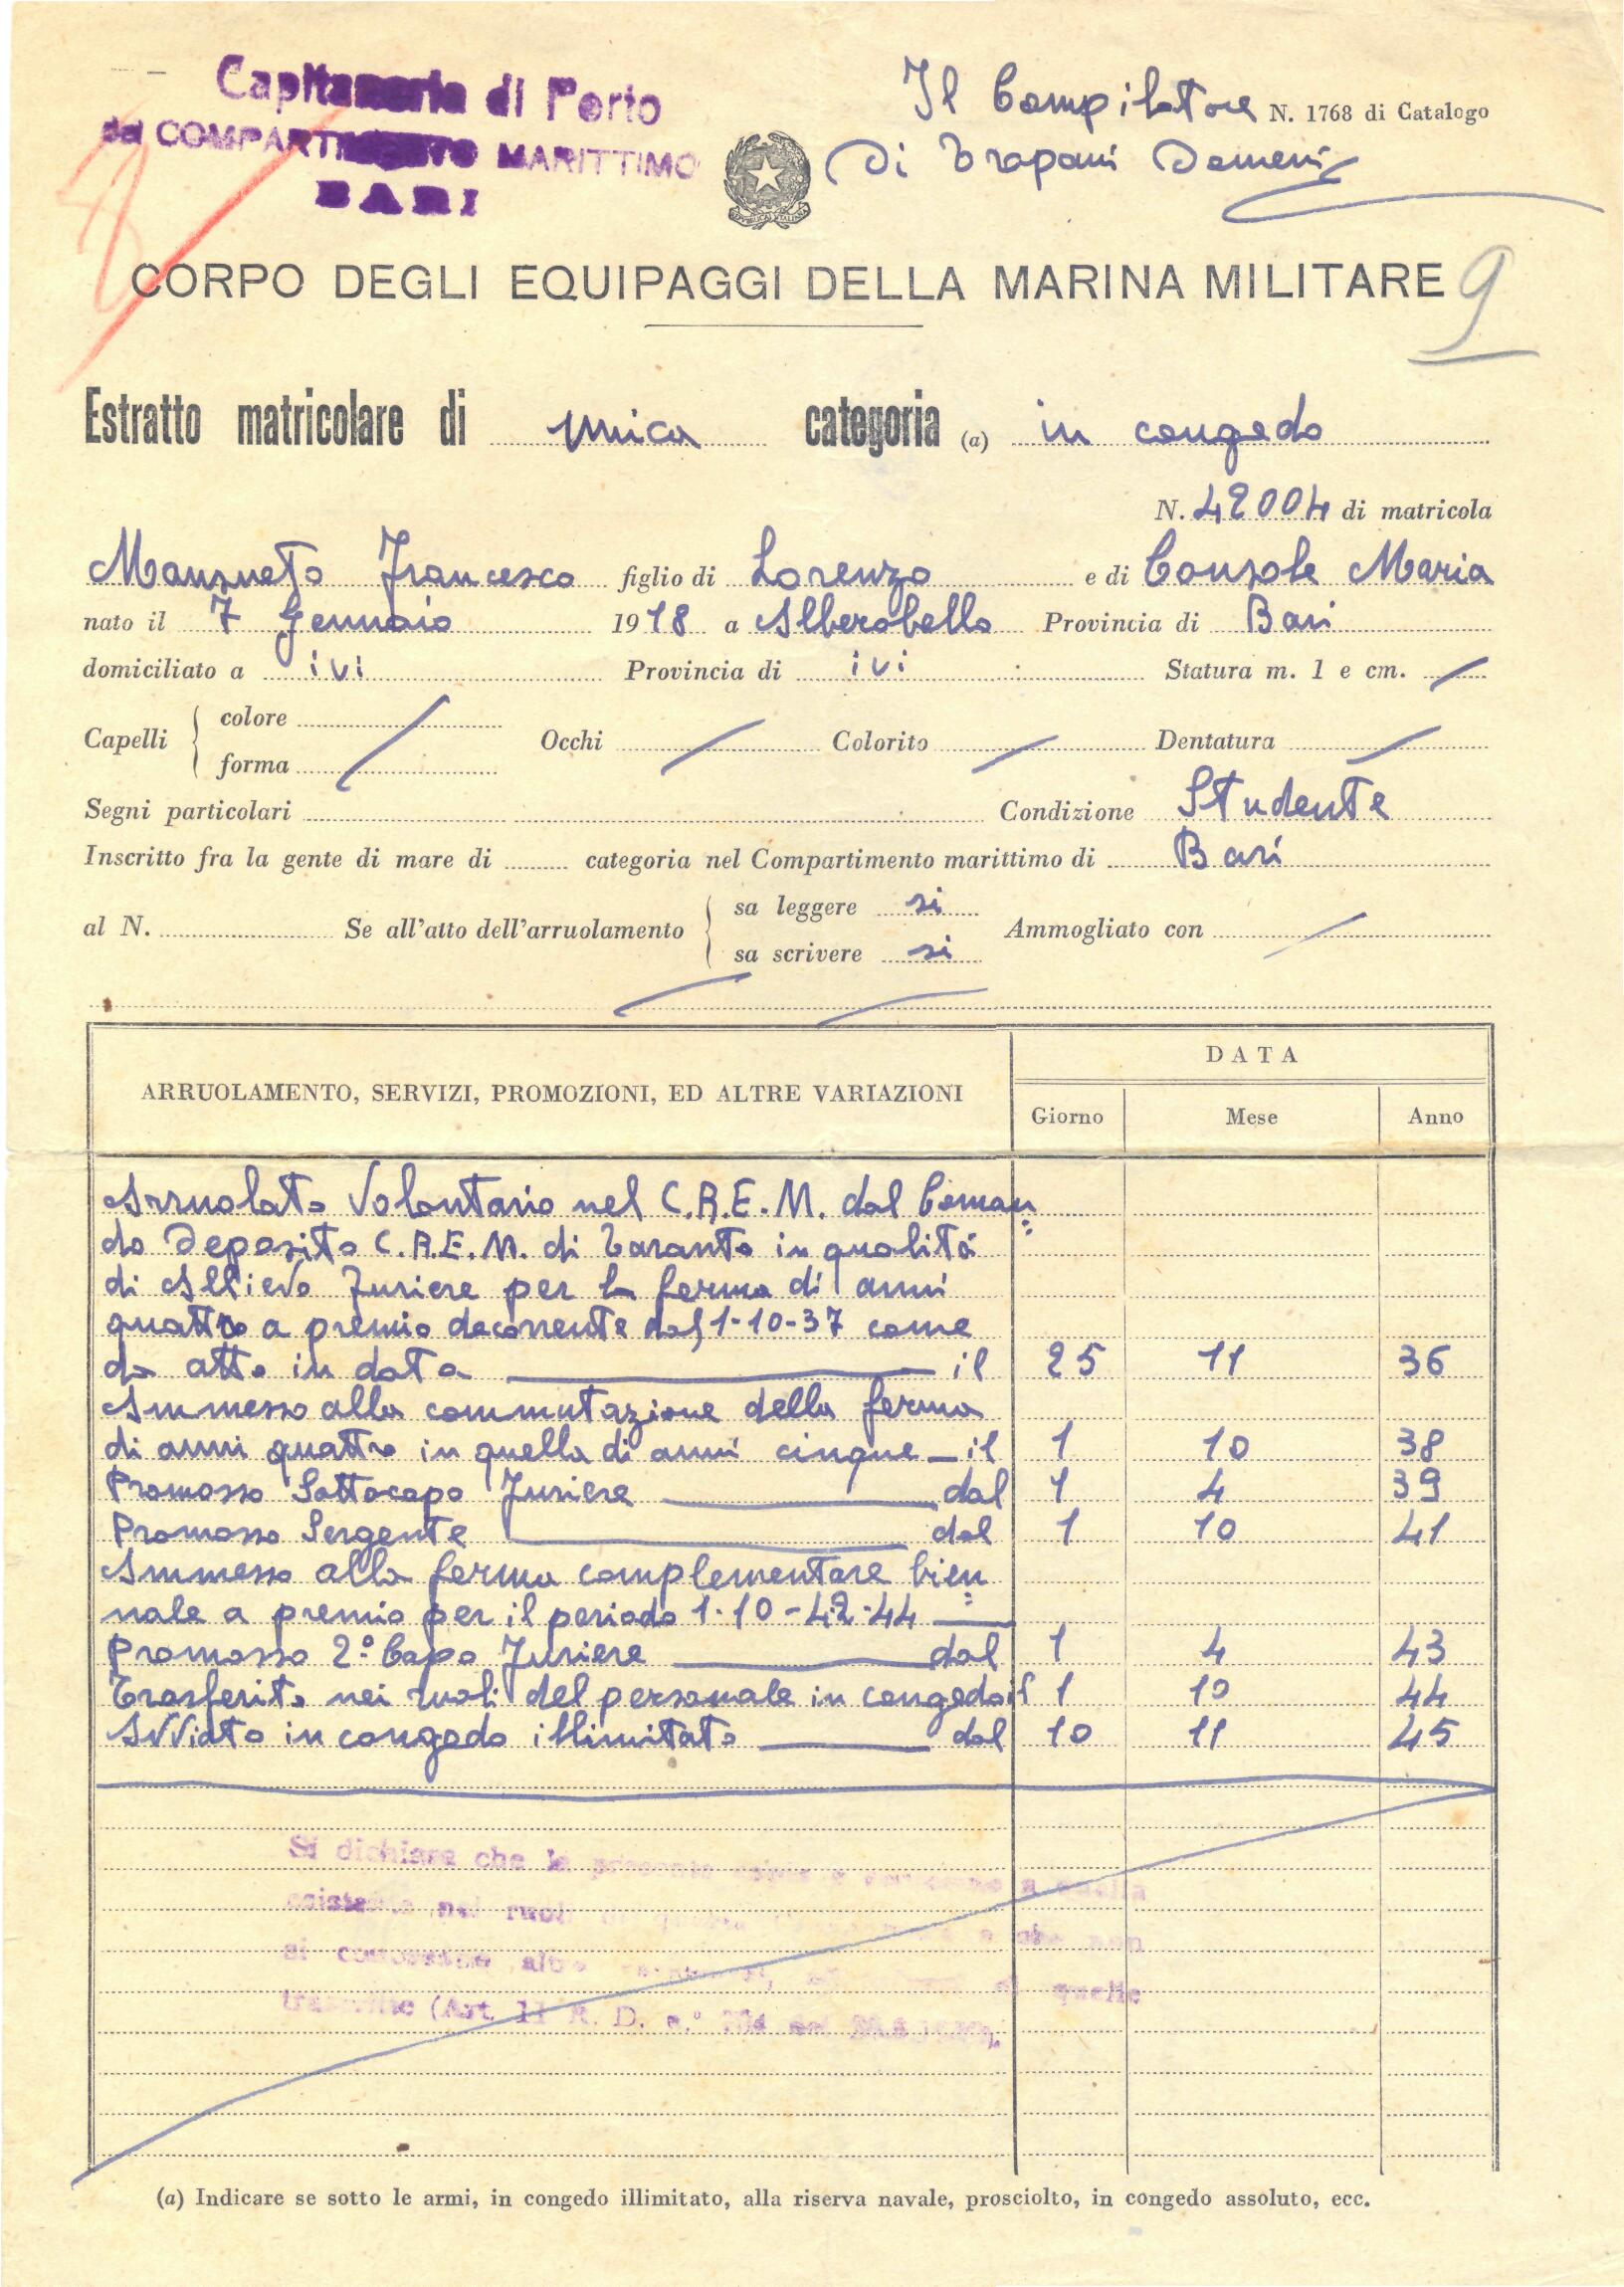 Capitaneria di Porto
del COMPARTIMENTO MARITTIMO
BARI
Il Compilatore
N. 1768 di Catalogo
Di Trapani
CORPO DEGLI EQUIPAGGI DELLA MARINA MILITARE
9
Estratto matricolare di unica categoria (a) in congedo
N. 42004 di matricola
Mansueto Francesco figlio di Lorenzo e di Console Maria
nato il 7 Gennaio 1918 a Alberobello Provincia di Bari
domiciliato a ivi Provincia di ivi Statura m. 1 e cm.
Capelli colore
forma
Occhi Colorito Dentatura
Segni particolari Condizione Studente
Inscritto fra la gente di mare di categoria nel Compartimento marittimo di Bari
al N. Se all'atto dell'arruolamento sa leggere si
sa scrivere si
Ammogliato con
ARRUOLAMENTO, SERVIZI, PROMOZIONI, ED ALTRE VARIAZIONI
DATA
Giorno Mese Anno
Arruolato Volontario nel C.R.E.M. dal Coman=
do Deposito C.R.E.M. di Taranto in qualità
di Allievo Furiere per la ferma di anni
quattro a premio decorrente dal 1-10-37 come
da atto in data il 25 11 36
Ammesso alla commutazione della ferma
di anni quattro in quella di anni cinque - il 1 10 38
Promosso Sottocapo Furiere dal 1 4 39
Promosso Sergente dal 1 10 41
Ammesso alla ferma complementare bien=
nale a premio per il periodo 1-10-42-44
Promosso 2° Capo Furiere dal 1 4 43
Trasferito nei ruoli del personale in congedo il 1 10 44
Avviato in congedo illimitato dal 10 11 45
Si dichiara che la presente a quella
esistente nei ruoli e che non
si conoscono altre quelle
trascritte (Art. 11 R. D. n.°
(a) Indicare se sotto le armi, in congedo illimitato, alla riserva navale, prosciolto, in congedo assoluto, ecc.